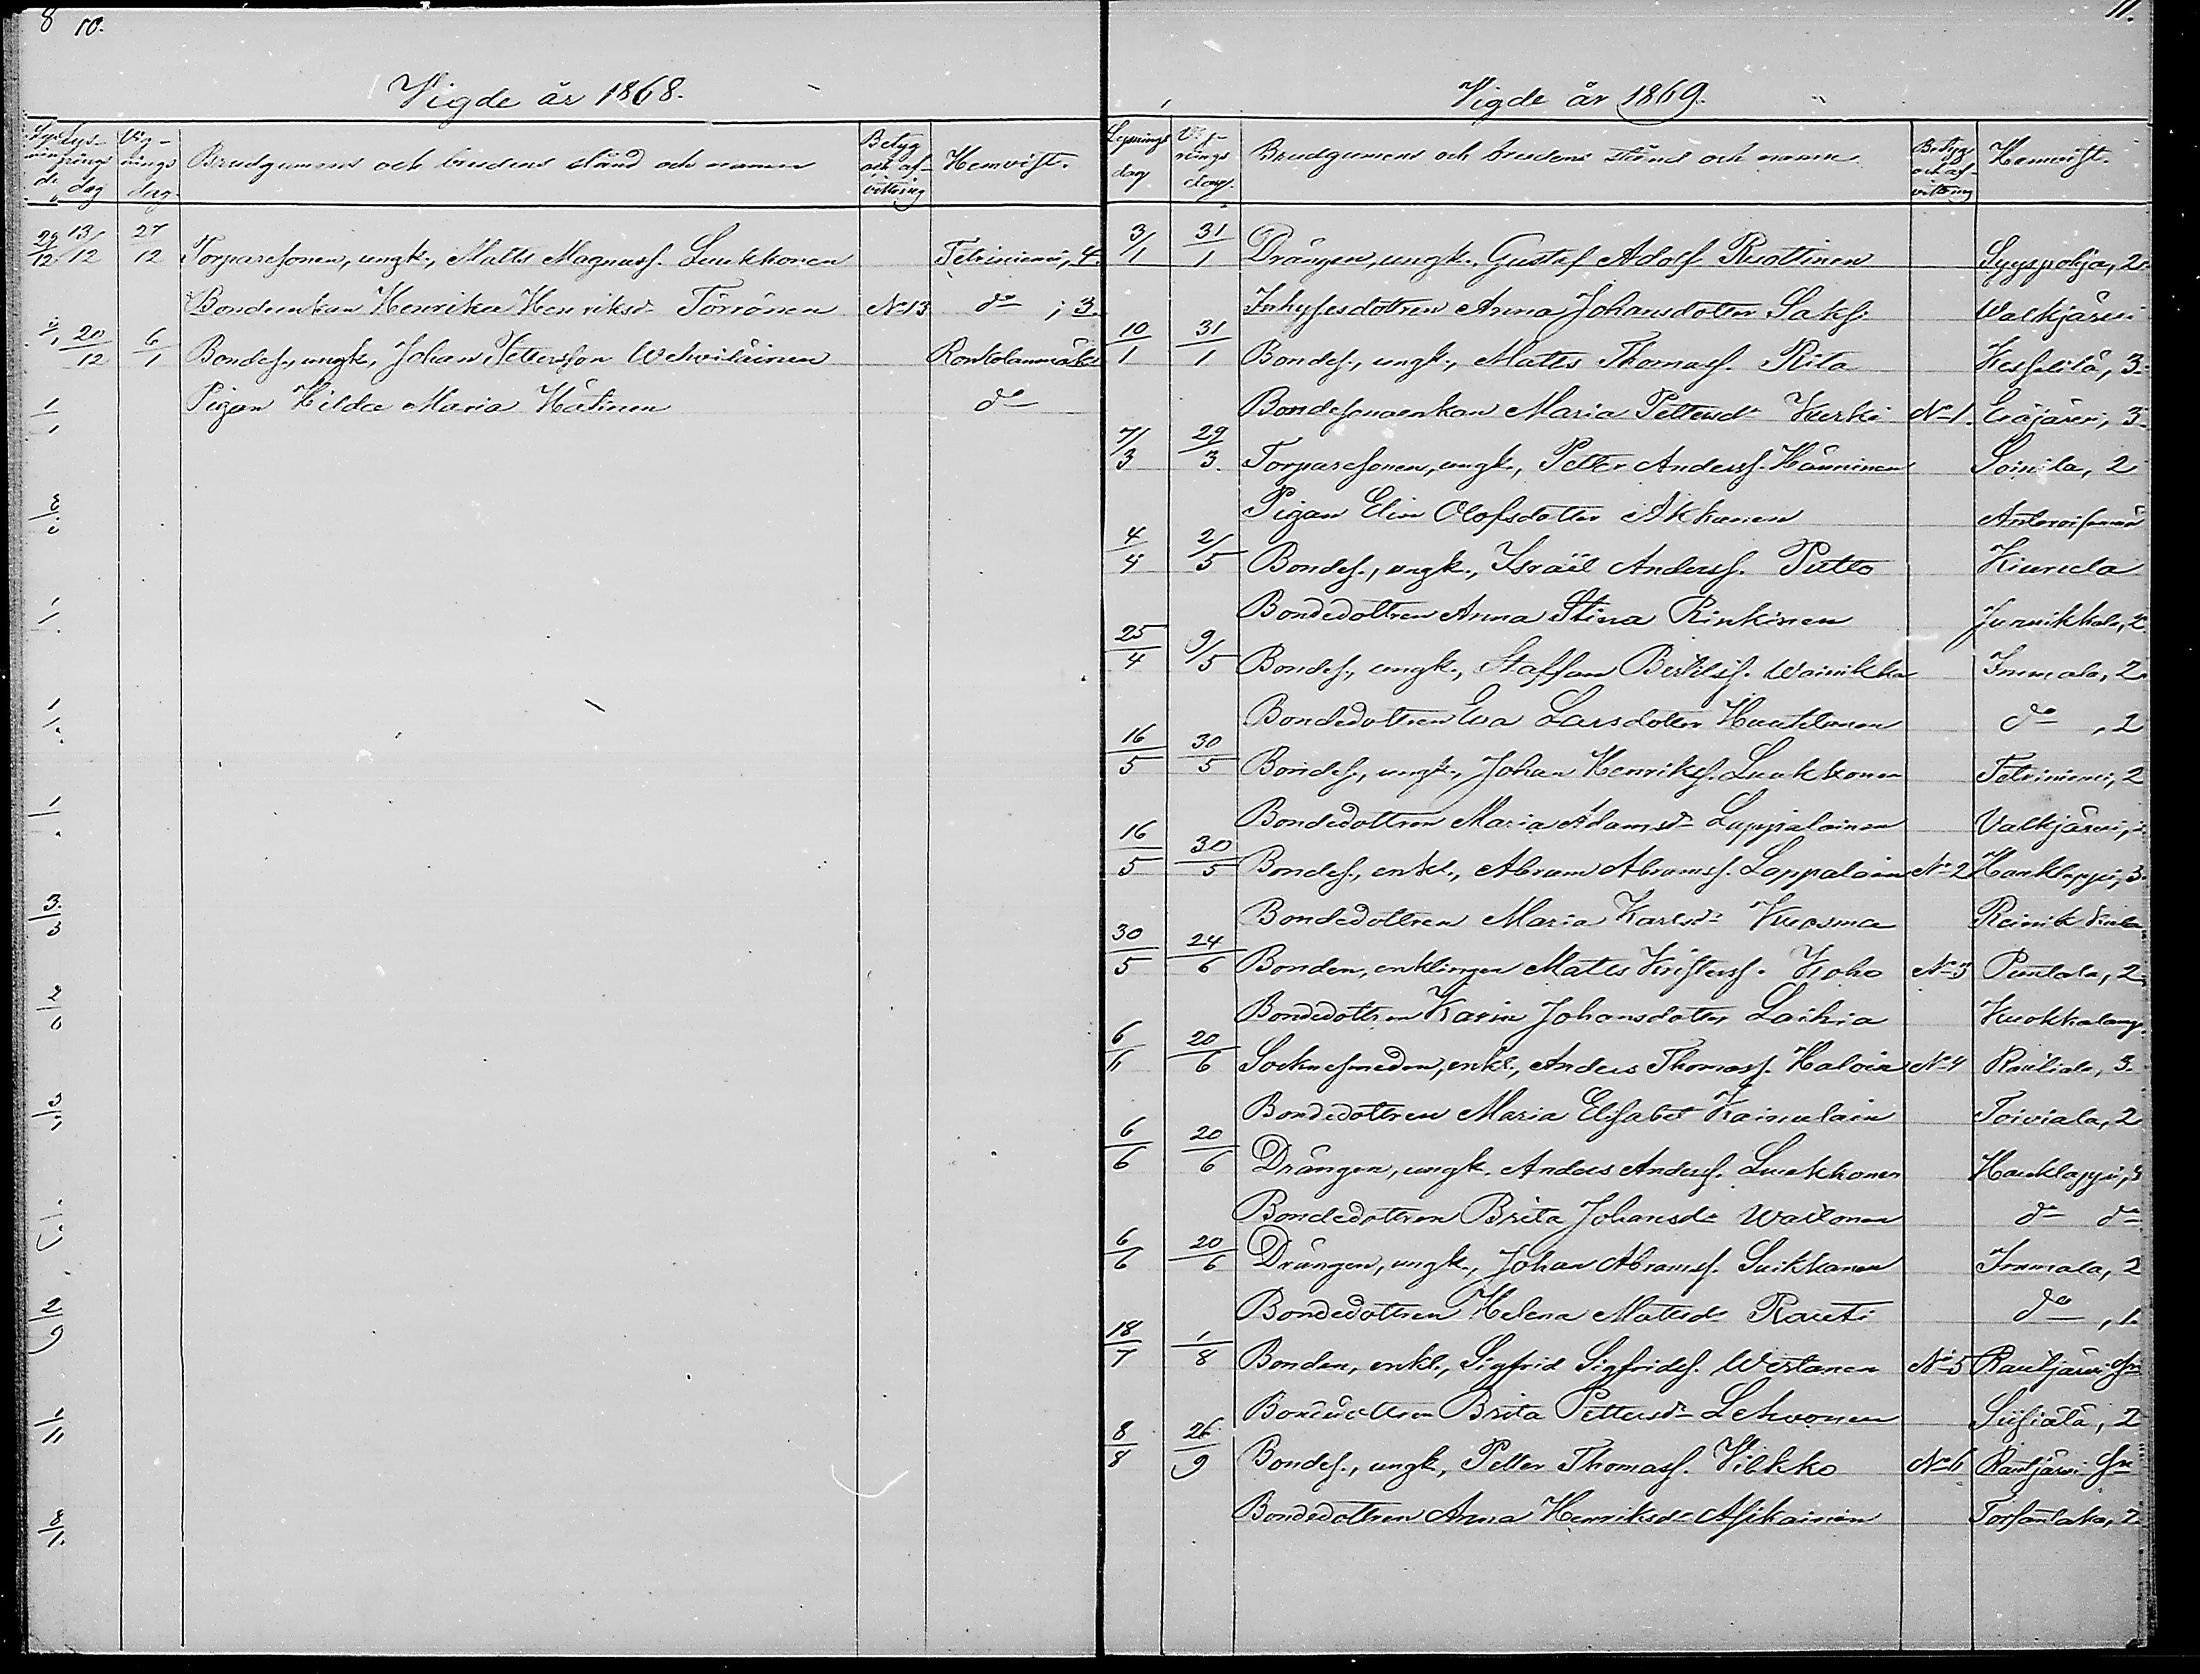 8 10.
Vigde år 1868.
Lysnings dag Vignings dag Brudgummens och brudens stånd och namn Betyg och afvittring Hemvist.
13/12 27/12 Torparesonen, ungk., Matts Magnuss. Luukkonen Telviniemi, 4.
Bondeenkan Henrika Henriksdr Törrönen No 13 do , 3.
20/12 6/1 Bondes., ungk., Johan Pettersson Wehviläinen Konkolanmäki
Pigan Hilda Maria Hätinen do
11.
Vigde år 1869.
Lysnings dag Vignings dag. Brudgumens och brudens stånd och namn Betyg och afvittring Hemvist.
3/1 31/1 Drängen, ungk., Gustaf Adolf Ruottinen Syyspohja, 2.
Inhysesdottren Anna Johansdotter Saksi Walkjärvi
10/1 31/1 Bondes., ungk., Matts Thomass. Rita Kesselilä, 3.
Bondesonenkan Maria Pettersdr Kurki No 1. Eräjärvi, 3.
7/3 29/3. Torparesonen, ungk., Petter Anderss. Hänninen Soinila, 2
Pigan Elin Olofsdotter Akkanen
4/4 2/5 Bondes., ungk., Israël Anderss. Putto Kiurula
Bondedottren Anna Stina Rinkinen Junnikkala, 2.
25/4 9/5 Bondes., ungk., Staffan Bertilss. Wainikka Immala, 2.
Bondedottren Eva Larsdotter Huuhtanen do , 2
16/5 30/5 Bondes., ungk., Johan Henrikss. Luukkonen Telviniemi, 2
Bondedottren Maria Adamsdr Lappalainen Valkjärvi,
16/5 30/5 Bondes., enkl., Abram Abramss. Lappalain No 2 Hauklappi, 3.
Bondedottren Maria Karlsdr Kuosma
30/5 24/6 Bonden, enklingen Matts Kristerss. Koho No 3 Puntala, 2.
Bondedottren Karin Johansdotter Laihia
6/6 20/6 Socknesmeden, enkl., Anders Thomass. Haloin No 4 Rauliala, 3.
Bondedottren Maria Elisabet Kainulain Toiviala, 2
6/6 20/6 Drängen, ungk. Anders Anderss. Luukkonen Hauklappi, 3
Bondedottren Brita Johansdr Wartonen do do
6/6 20/6 Drängen, ungk., Johan Abramss. Suikkanen Immala, 2
Bondedottren Helena Mattsdr Rauti do , 1.
18/7 1/8 Bonden, enkl., Sigfrid Sigfridss. Westanen No 5 Rautjärvi sn
Bondedottren Brita Pettersdr Lehvonen Siisiälä, 2
8/8 26/9 Bondes., ungk., Petter Thomass. Vilkko No 6 Rautjärvi sn
Bondedottren Anna Henriksdr Asikainen Torsanlaho, 2.